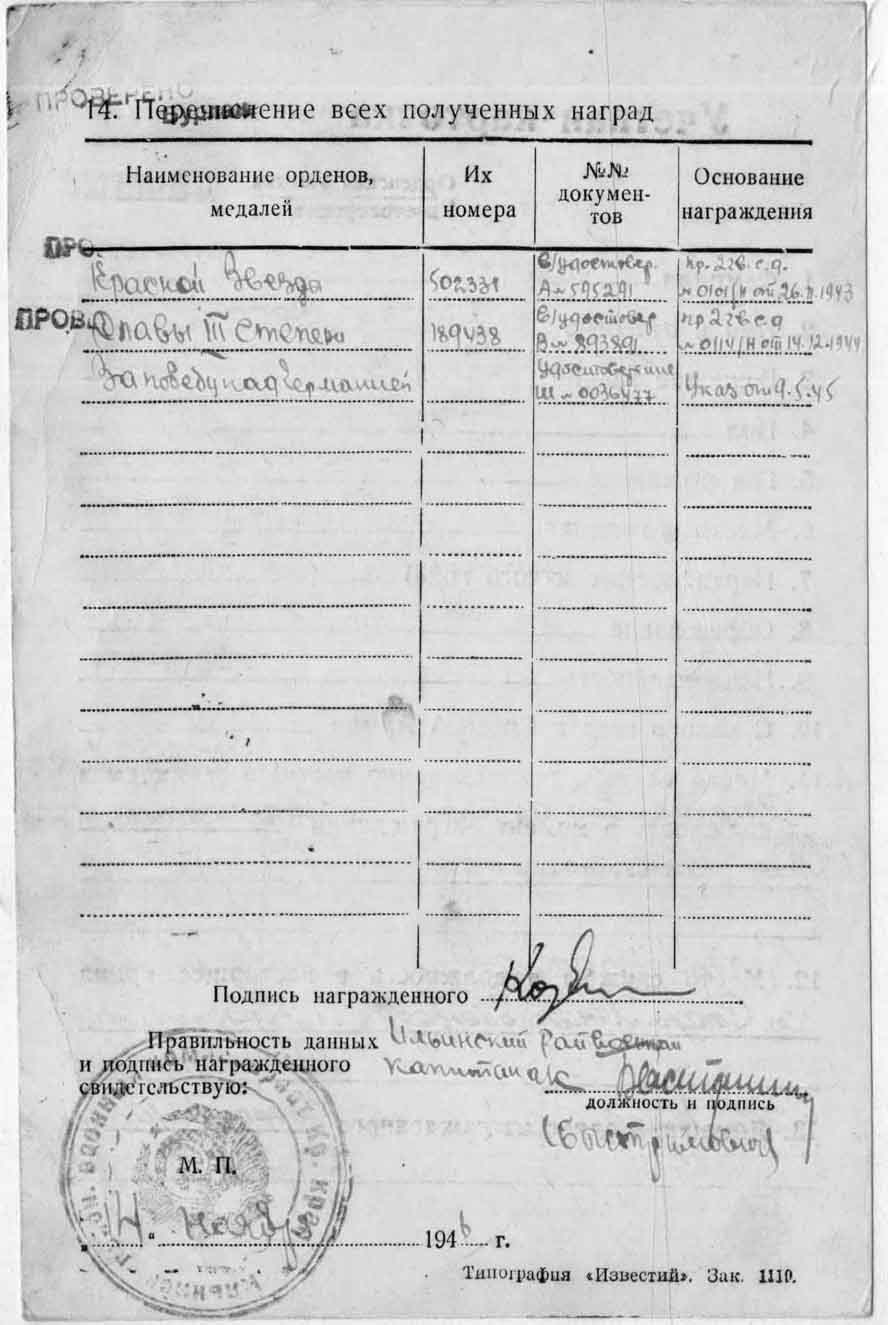 ПРОВЕРЕНО
14. Перечисление всех полученных наград
Наименование орденов, медалей
Их номера
№№ докумен-тов
Основание награждения
ПРО
Красной Звезды
502331
В/удостовер.
А № 595291
Пр. 2 гв. с.д.
№ 0101/н от 26.11.1943
ПРОВ
Славы III степени
189438
В/удостовер
В № 893891
пр 2 гв с д
№ 0114/н от 14.12.1944
За победу над Германией
Удостоверение
Ш № 0036477
Указ от 9.5.45
Подпись награжденного
Правильность данных
и подпись награжденного
свидетельствую:
Ильинский Райвоенком
капитан а/с
должность и подпись
М. П.
„14“ ноября 1946 г.
Типография «Известий». Зак. 1110.